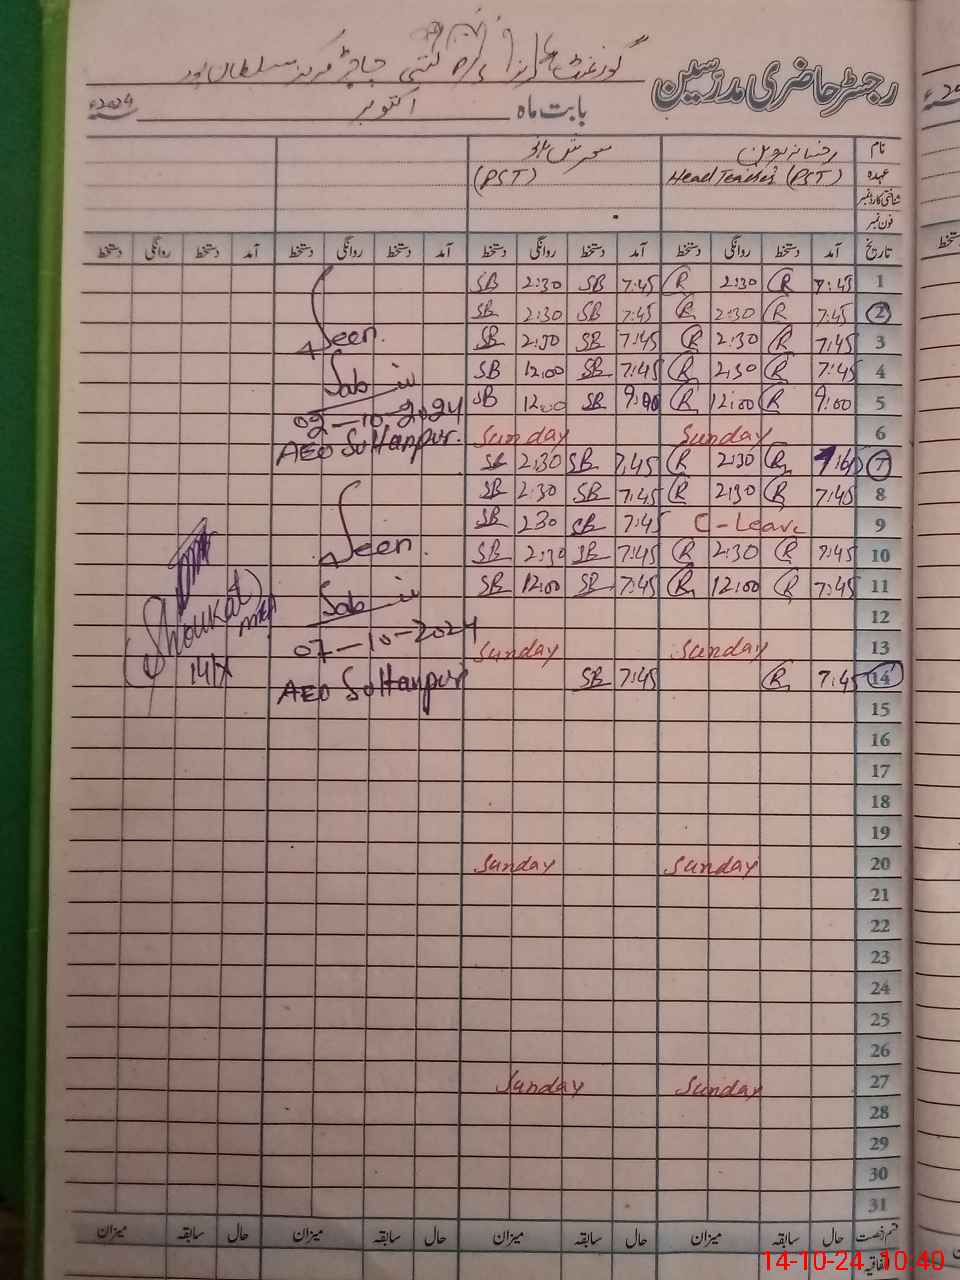 رجسٹر حاضری مدرسین
گورنمنٹ
سلطان پور
بابت ماہ اکتوبر ۲۰۲۴ء
نام
عہدہ Head Teacher (PST) (PST)
شناختی کارڈ نمبر
فون نمبر
تاریخ آمد دستخط روانگی دستخط آمد دستخط روانگی دستخط آمد دستخط روانگی دستخط آمد دستخط روانگی دستخط
1 7:45 R 2:30 R 7:45 SB 2:30 SB
2 7:45 R 2:30 R 7:45 SB 2:30 SB
3 7:45 R 2:30 R 7:45 SB 2:30 SB
4 7:45 R 2:30 R 7:45 SB 12:00 SB
5 9:00 R 12:00 R 9:00 SB 12:00 SB
6 Sunday Sunday
7 R 2:30 R 7:45 SB 2:30 SB
8 7:45 R 2:30 R 7:45 SB 2:30 SB
9 C-Leave 7:45 SB 230 SB
10 7:45 R 2:30 R 7:45 SB 2:30 SB
11 7:45 R 12:00 R 7:45 SB 12:00 SB
12
13 Sunday Sunday
14 7:45 R 7:45 SB
15
16
17
18
19
20 Sunday Sunday
21
22
23
24
25
26
27 Sunday Sunday
28
29
30
31
Seen
02-10-2024
AEO Sultanpur.
Seen.
07-10-2024
AEO Sultanpur
Shoukat
MEA
14/X
حال سابقہ میزان حال سابقہ میزان حال سابقہ میزان حال سابقہ میزان
اتفاقیہ
14-10-24 10:40